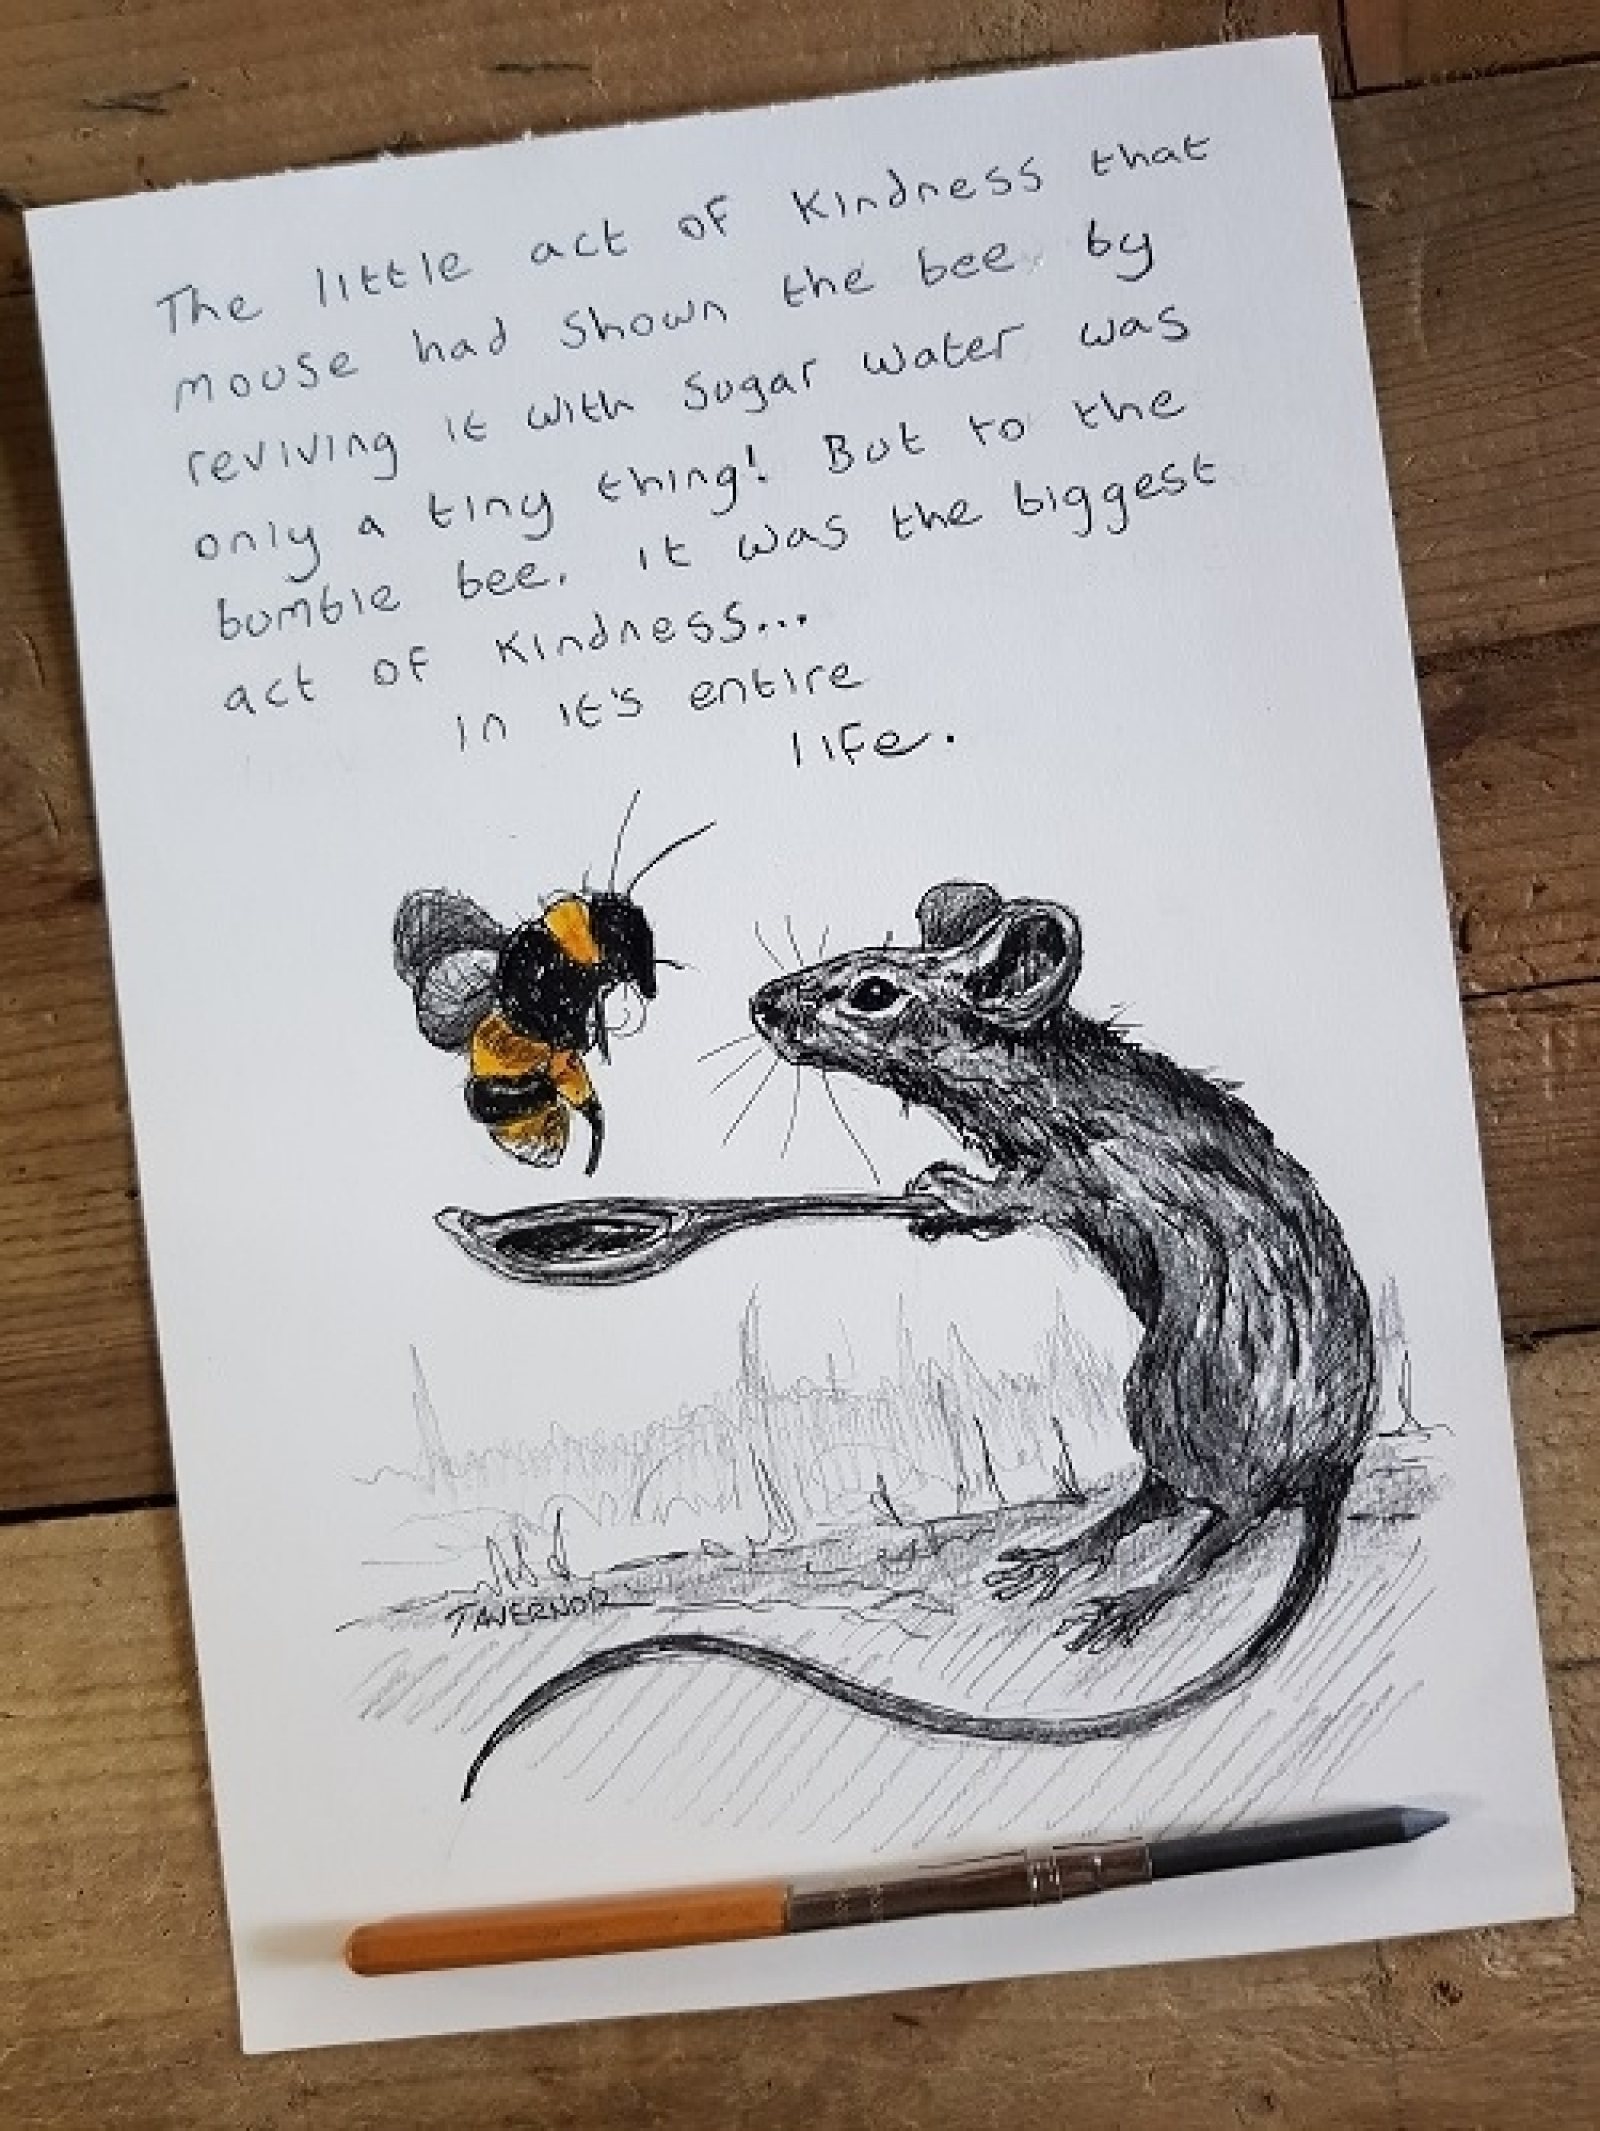 The little act of kindness that
mouse had shown the bee, by
reviving it with sugar water was
only a tiny thing! But to the
bumble bee, it was the biggest
act of kindness...
in it's entire
life.
TAVERNOR